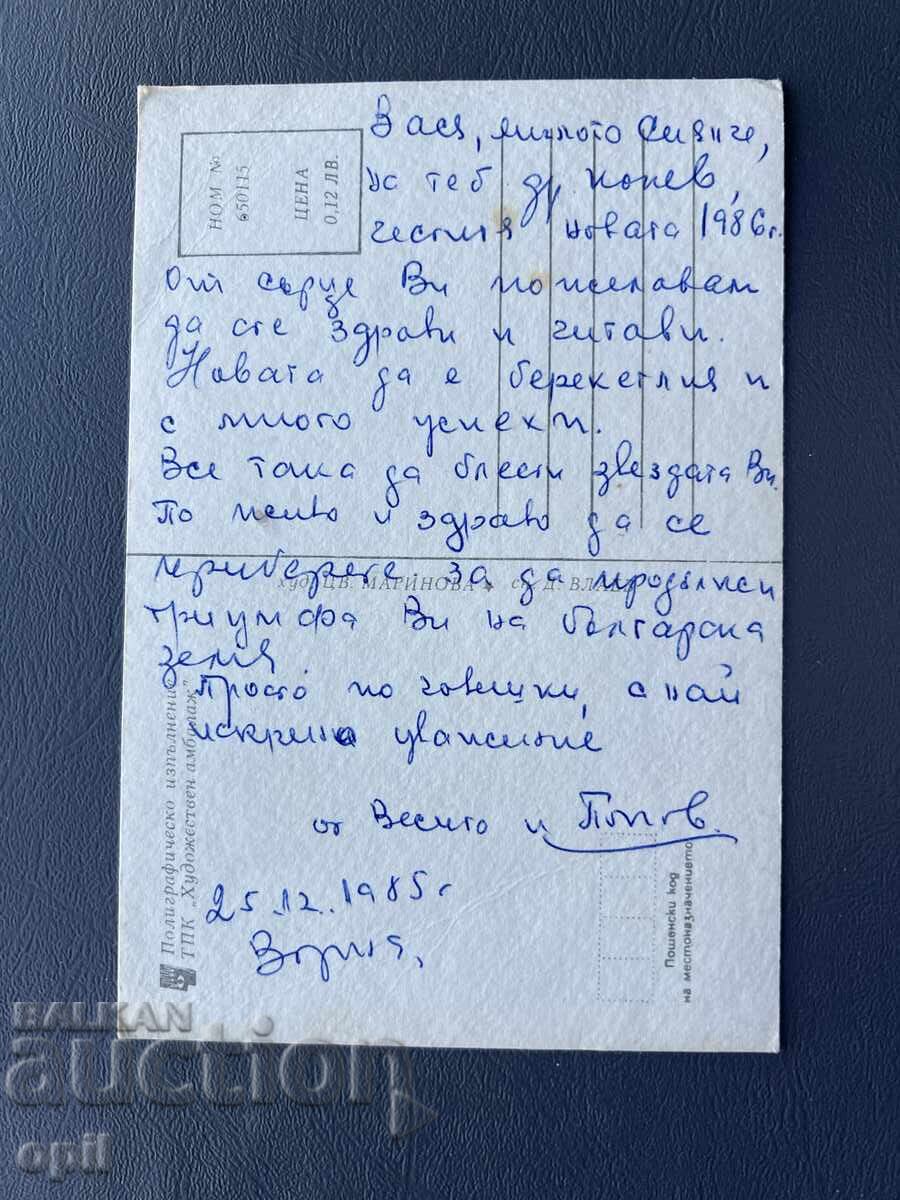 Вася, милото
на теб др. Конев,
честита новата 1986г.
От сърце Ви пожелавам
да сте здрави и читави.
Новата да е берекетлия и
с много успехи.
Все така да блести звездата Ви.
По живо и здраво да се
приберете за да продължи
триумфа Ви на българска
земя.
Просто по човешки, с най
искрено уважение
от Весито и Попов.
25.12.1985г
Варна,
НОМ №
650115
ЦЕНА
0,12 ЛВ.
худ. ЦВ. МАРИНОВА
Полиграфическо изпълнение
ТПК „Художествен амбалаж"
Пощенски код
на местоназначението
BALKAN
auction
opil